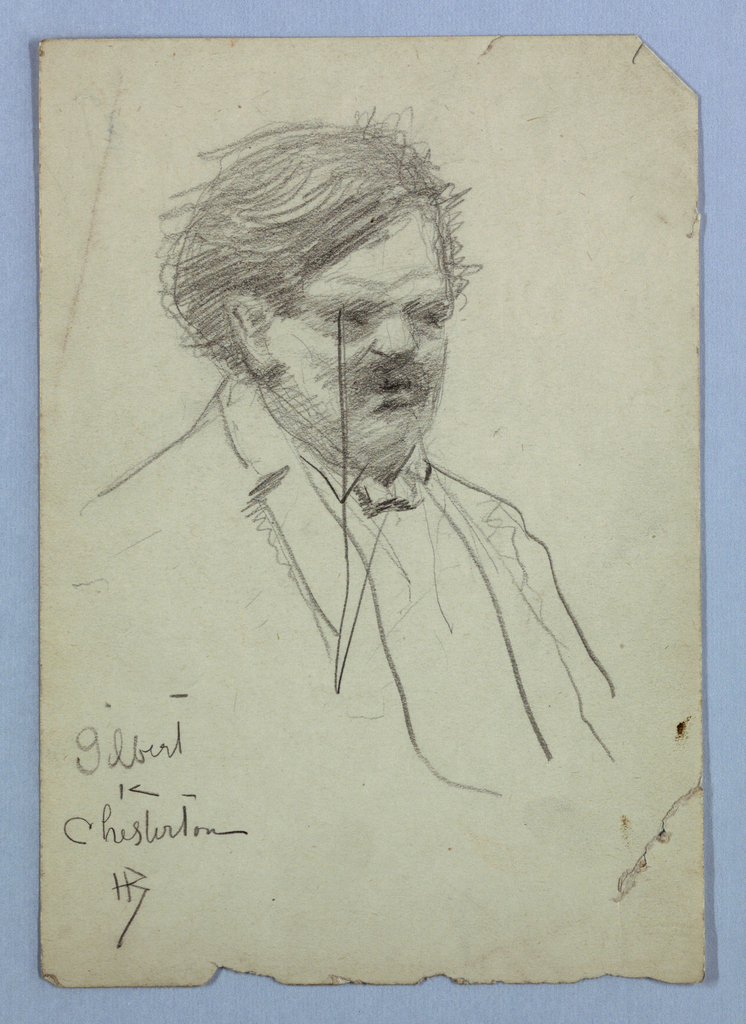 Gilbert
K
Chesterton
HB